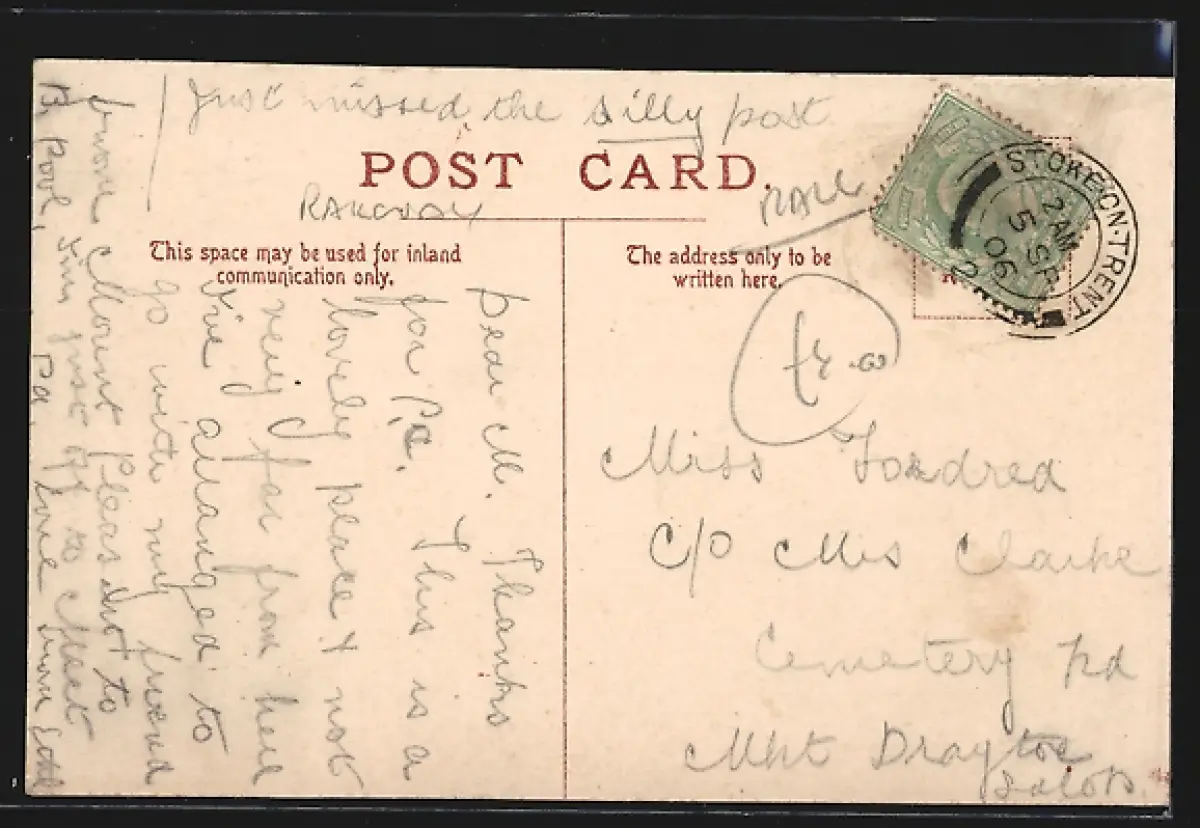 Just missed the silly post
POST CARD.
RAILWAY
This space may be used for inland
communication only.
The address only to be
written here.
STOKE-ON-TRENT
2 AM
5 SP
06
2
Dear M. Thanks
for P.C. This is a
lovely place & not
very far from here
I've arranged to
go with my friend
Mount Pleasant to
just off to meet
Pa. Love from
Miss Foxdred
C/o Mrs Clarke
Cemetery Rd
Mkt Drayton
Salop.